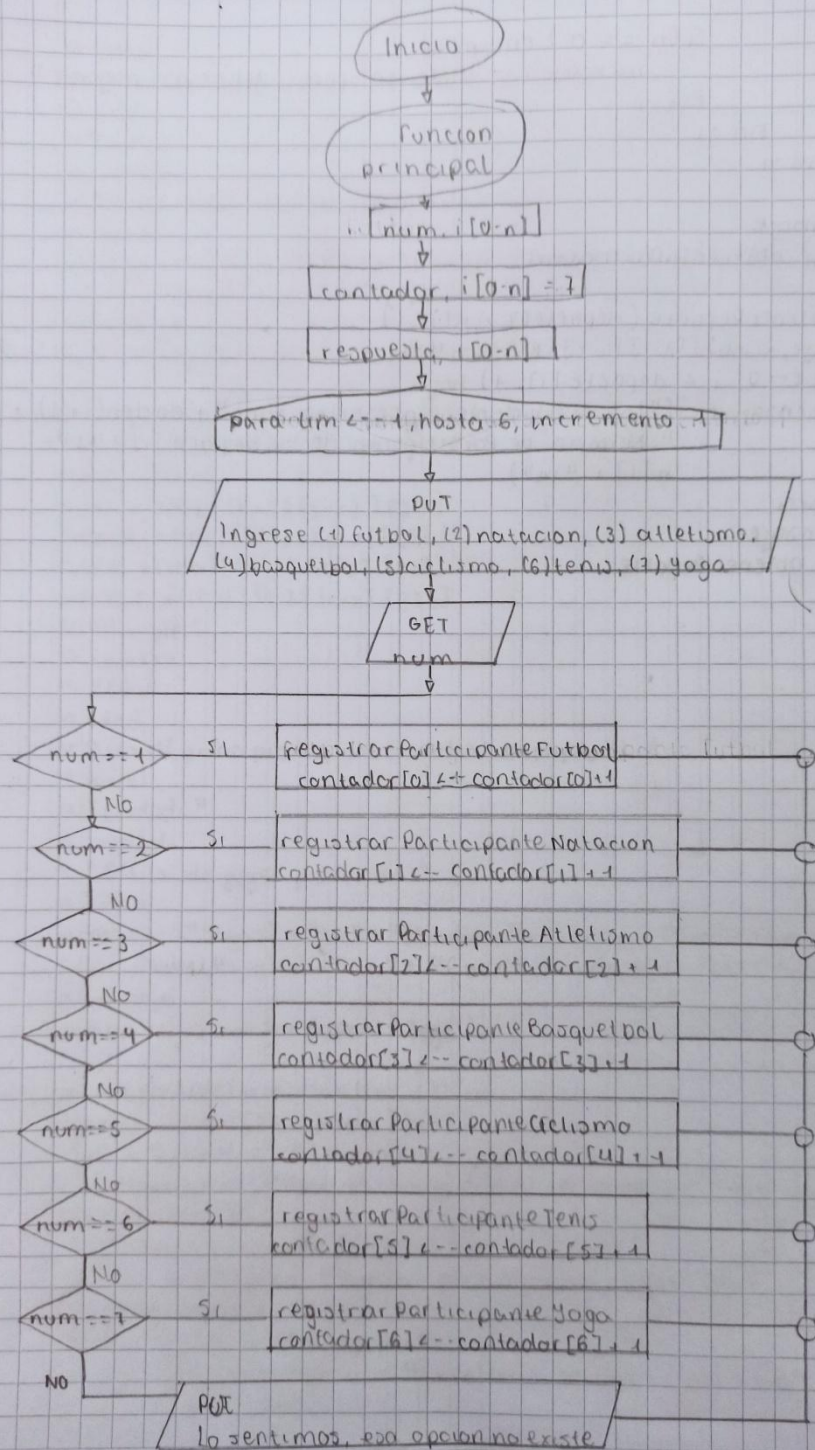 Inicio
Funcion
principal
num, i[0-n]
contador, i[0-n] = 7
respuesta, i[0-n]
para lim <-- 1, hasta 6, incremento 1
PUT
Ingrese (1) futbol, (2) natacion, (3) atletismo,
(4) basquetbol, (5) ciclismo, (6) tenis, (7) yoga
GET
num
num==1
SI
registrarParticipanteFutbol
contador[0] <-- contador[0]+1
NO
num==2
Si
registrarParticipanteNatacion
contador[1] <-- contador[1]+1
NO
num==3
Si
registrarParticipanteAtletismo
contador[2] <-- contador[2]+1
NO
num==4
Si
registrarParticipanteBasquetbol
contador[3] <-- contador[3]+1
NO
num==5
Si
registrarParticipanteCiclismo
contador[4] <-- contador[4]+1
NO
num==6
Si
registrarParticipanteTenis
contador[5] <-- contador[5]+1
NO
num==7
Si
registrarParticipanteYoga
contador[6] <-- contador[6]+1
NO
PUT
lo sentimos, esa opcion no existe